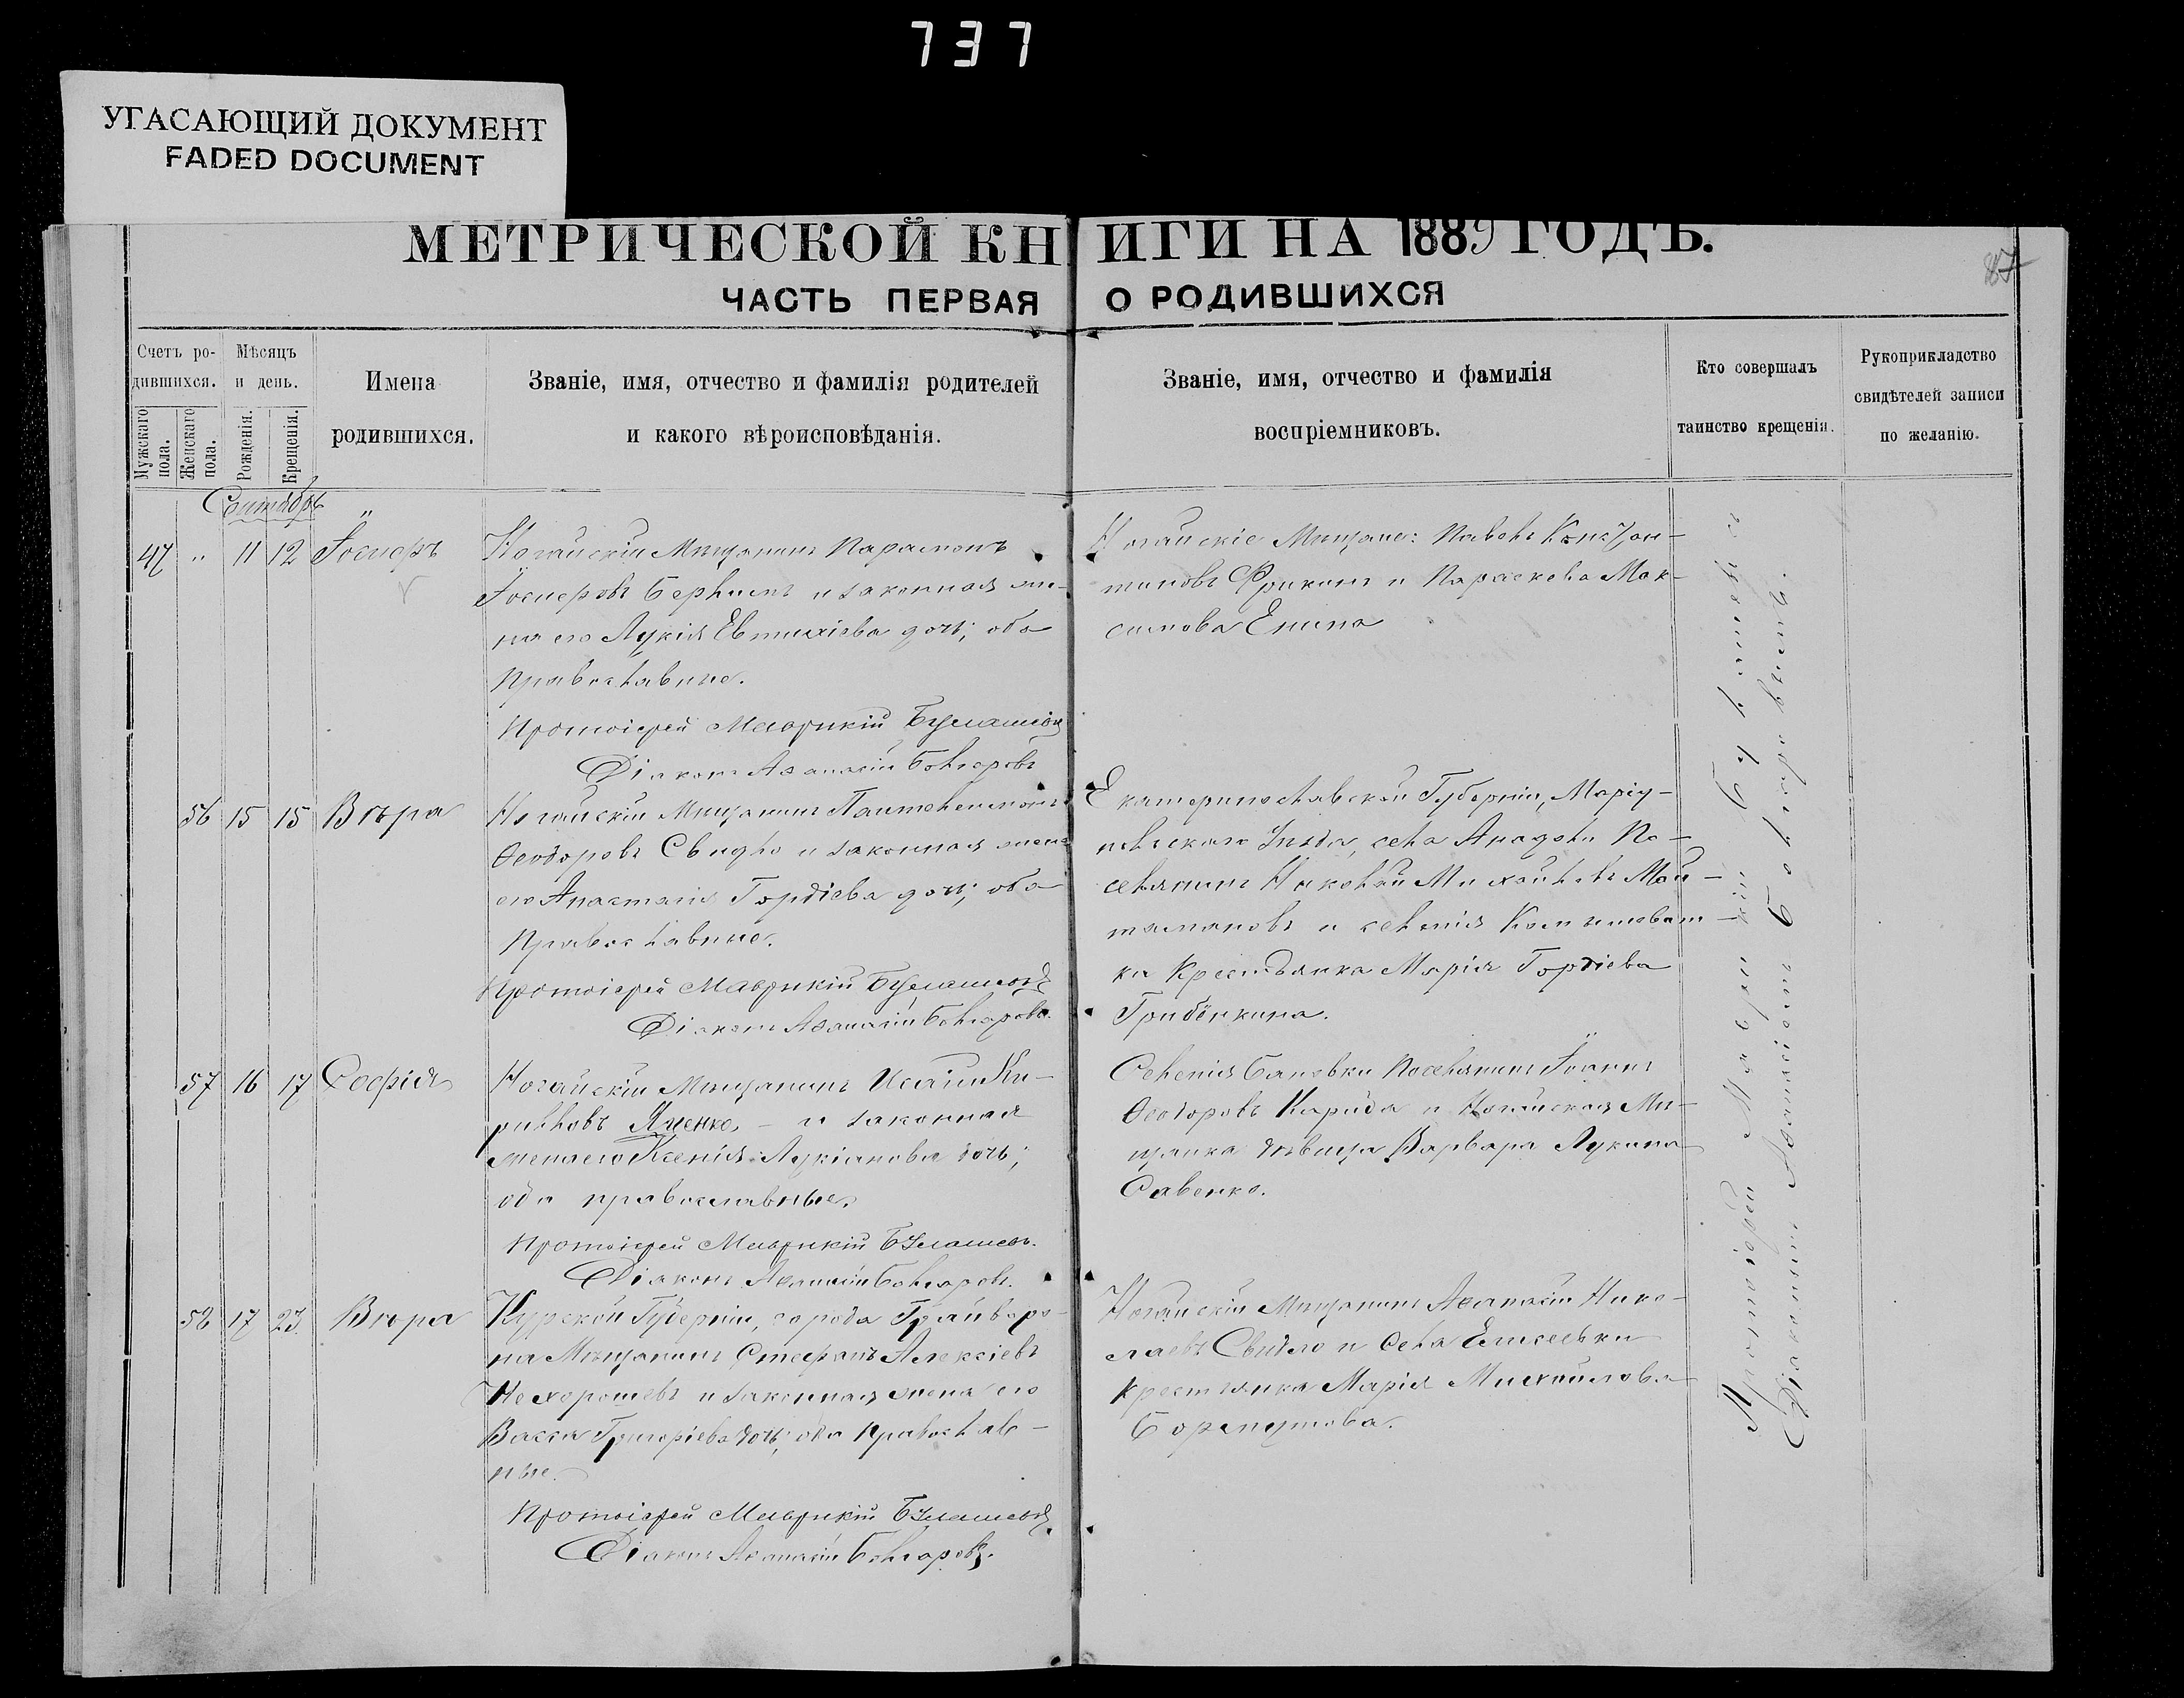 737
УГАСАЮЩИЙ ДОКУМЕНТ
FADED DOCUMENT
МЕТРИЧЕСКОЙ КНИГИ НА 1889 ГОДЪ.
87
ЧАСТЬ ПЕРВАЯ О РОДИВШИХСЯ
Счетъ ро-
дившихся.
Мужскаго
пола.
Женскаго
пола.
Мѣсяцъ
и день.
Рожденія.
Крещенія.
Имена
родившихся.
Званіе, имя, отчество и фамилія родителей
и какого вѣроисповѣданія.
Званіе, имя, отчество и фамилія
воспріемниковъ.
Кто совершалъ
таинство крещенія.
Рукоприкладство
свидѣтелей записи
по желанію.
Сентябрь
47 " 11 12 Іосифъ
Ногайскій Мѣщанинъ Парамонъ
Іосифовъ и законная же-
на его Лукія Евтихіева дочь; оба
Православные.
Протоіерей Маврикій
Діаконъ Аѳанасій Болгаровъ
Ногайскіе Мѣщане: Павелъ Констан-
тиновъ и Параскева Мак-
симова Енина
56 15 15 Вѣра
Ногайскій Мѣщанинъ Пантелеимонъ
Ѳеодоровъ Свидло и законная жена
его Анастасія Гордіева дочь; оба
Православные.
Протоіерей Маврикій
Діаконъ Аѳанасій Болгаровъ.
Екатеринославской Губерніи, Маріу-
польскаго Уѣзда, села Анадоли По-
селянинъ Николай Михайловъ
и селенія Камышеват-
ки Крестьянка Марія Гордіева
Грибёнкина.
57 16 17 Софія
Ногайскій Мѣщанинъ Исаій Ки-
рилловъ Яценко, - и законная
жена его Ксенія Лукіанова дочь;
оба православные.
Протоіерей Маврикій
Діаконъ Аѳанасій Болгаровъ.
Селенія Бановки Поселянинъ Іоаннъ
Ѳеодоровъ и Ногайская Мѣ-
щанка дѣвица Варвара Лукина
Савенко.
58 17 23 Вѣра
Курской Губерніи, города Грайворо-
на Мѣщанинъ Стефанъ Алексіевъ
Нехорошевъ и законная жена его
Васса Григоріева дочь; оба Православ-
ные.
Протоіерей Маврикій
Діаконъ Аѳанасій Болгаровъ.
Ногайскій Мѣщанинъ Аѳанасій Нико-
лаевъ Свидло и Села Елисеевки
крестьянка Марія Михайлова
Протоіерей Маврикій
Діакономъ Аѳанасіемъ Болгаровымъ.